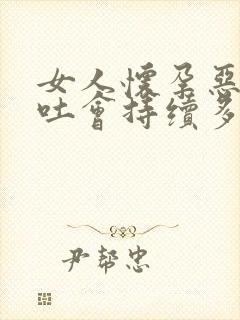 女人懷孕惡
吐會持續多
尹帮忠